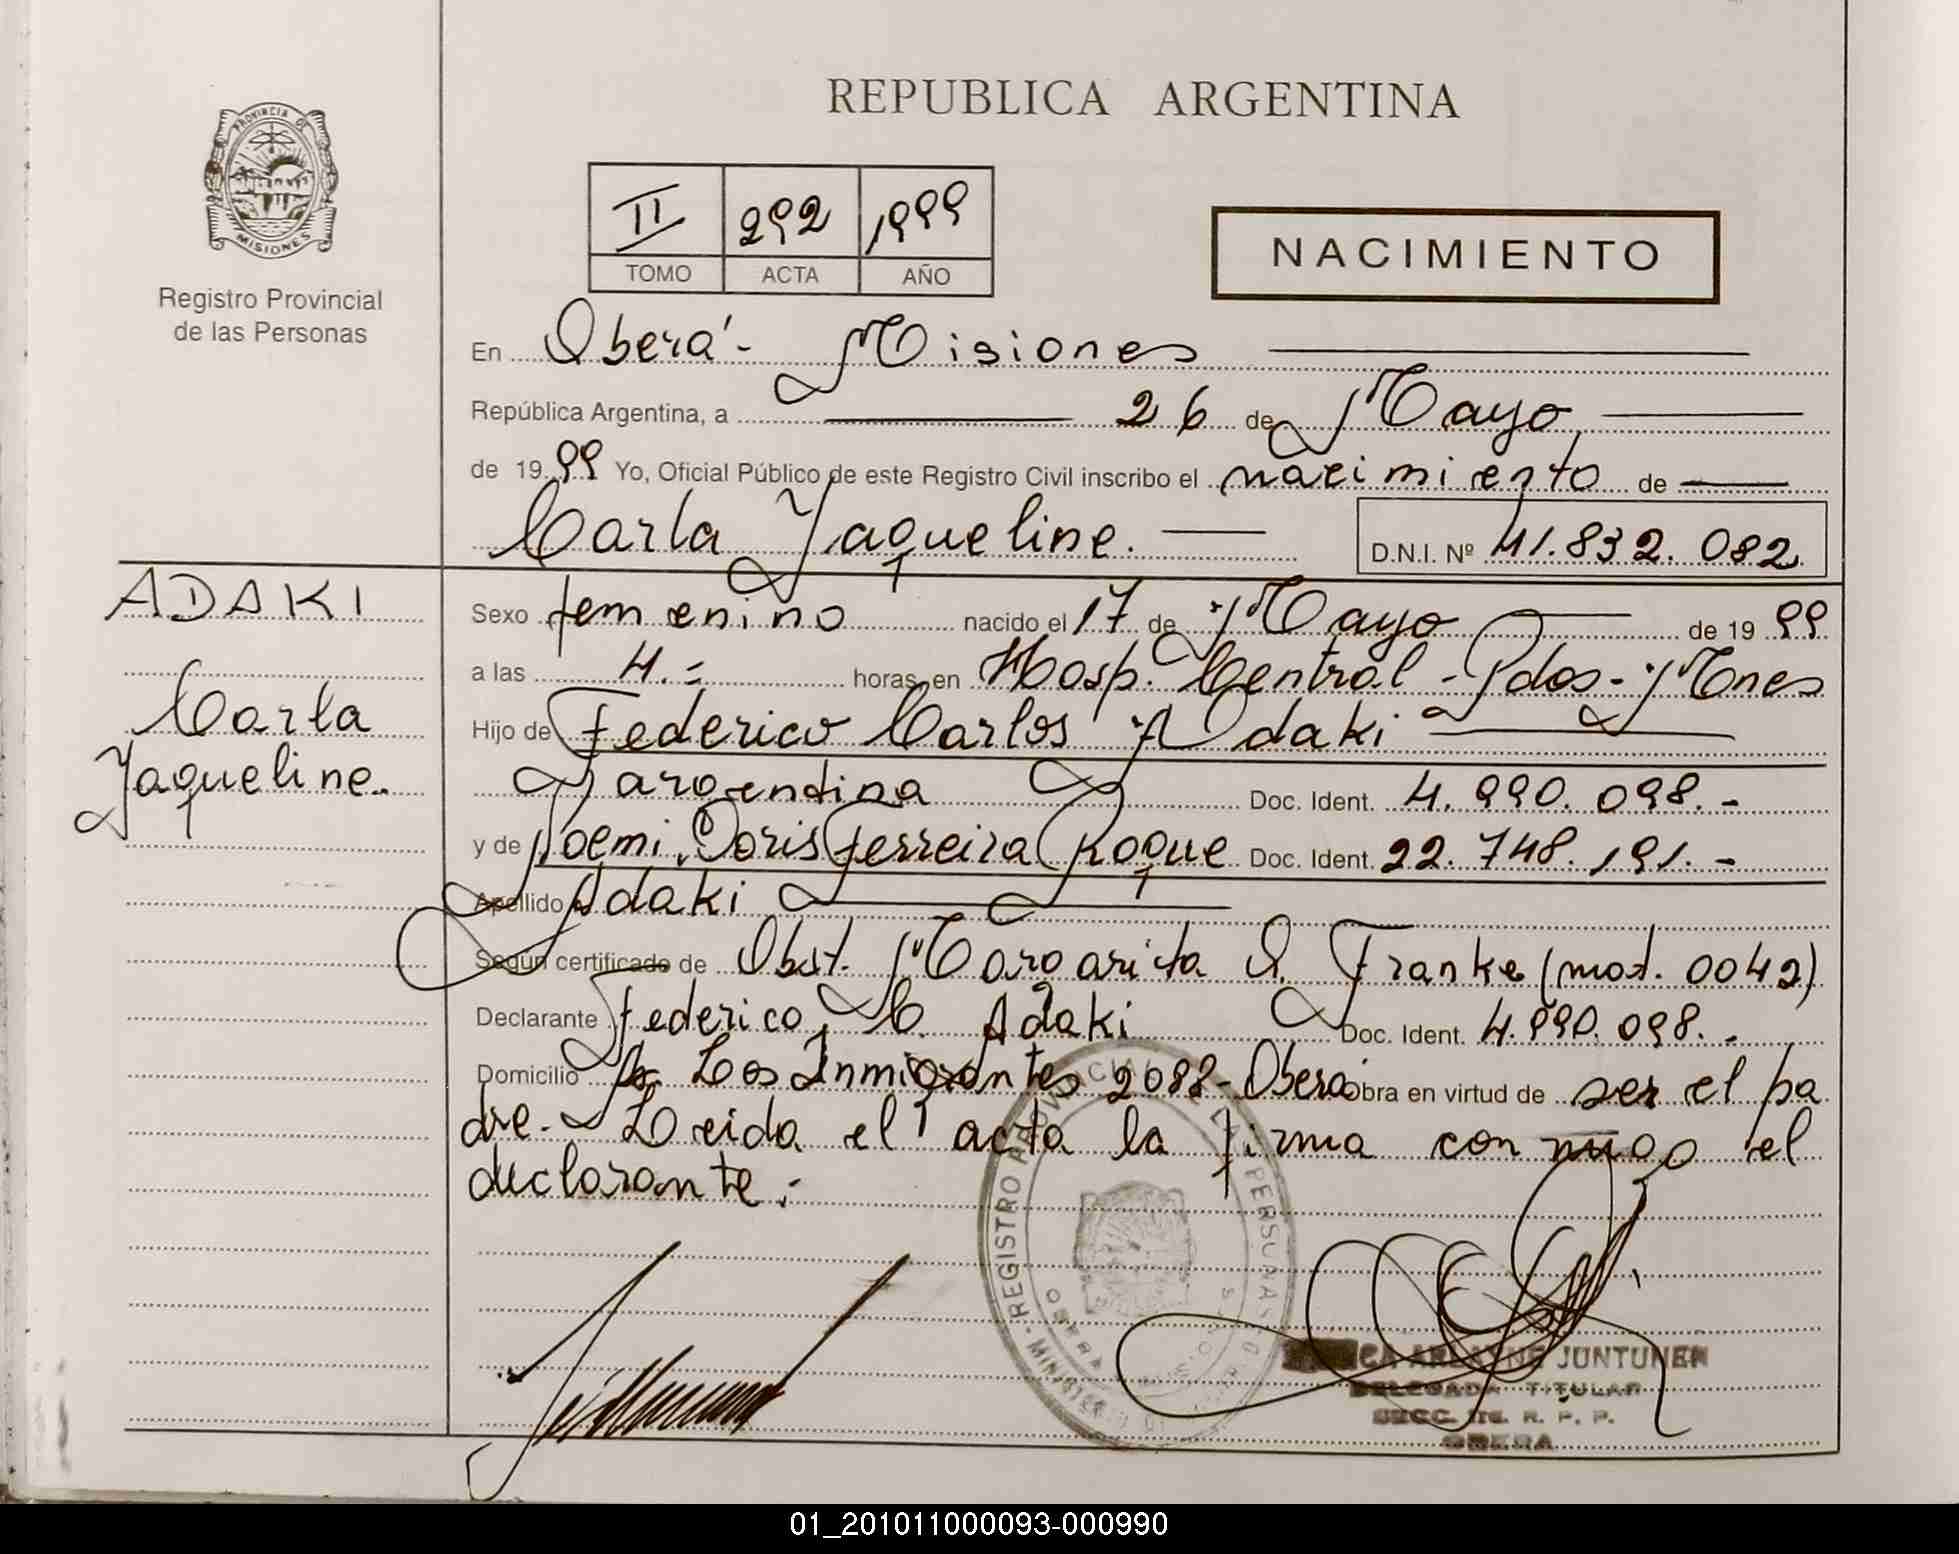 REPUBLICA ARGENTINA
PROVINCIA DE
MISIONES
Registro Provincial
de las Personas
II 292 1999
TOMO ACTA AÑO
NACIMIENTO
En Oberá - Misiones
República Argentina, a 26 de Mayo
de 1999 Yo, Oficial Público de este Registro Civil inscribo el nacimiento de
Carla Yaqueline.
D.N.I. Nº 41.832.082
ADAKI
Carla
Yaqueline.
Sexo femenino nacido el 17 de Mayo de 1999
a las 4.- horas, en Hosp. Central - Pdos - Mnes
Hijo de Federico Carlos Adaki
argentina Doc. Ident. 4.990.098.-
y de Noemi Doris Ferreira Roque Doc. Ident. 22.748.191.-
Apellido Adaki
Según certificado de Obst. Margarita O. Franke (mat. 0042)
Declarante Federico C. Adaki Doc. Ident. 4.990.098.-
Domicilio Av. Los Inmigrantes 2088 - Oberá obra en virtud de ser el pa
dre.- Leida el acta la firma conmigo el
declarante.-
REGISTRO PROVINCIAL DE LAS PERSONAS
OBERA
ARLAYNE JUNTUNEN
DELEGADA TITULAR
SECC. R. P. P.
OBERA
01_201011000093-000990